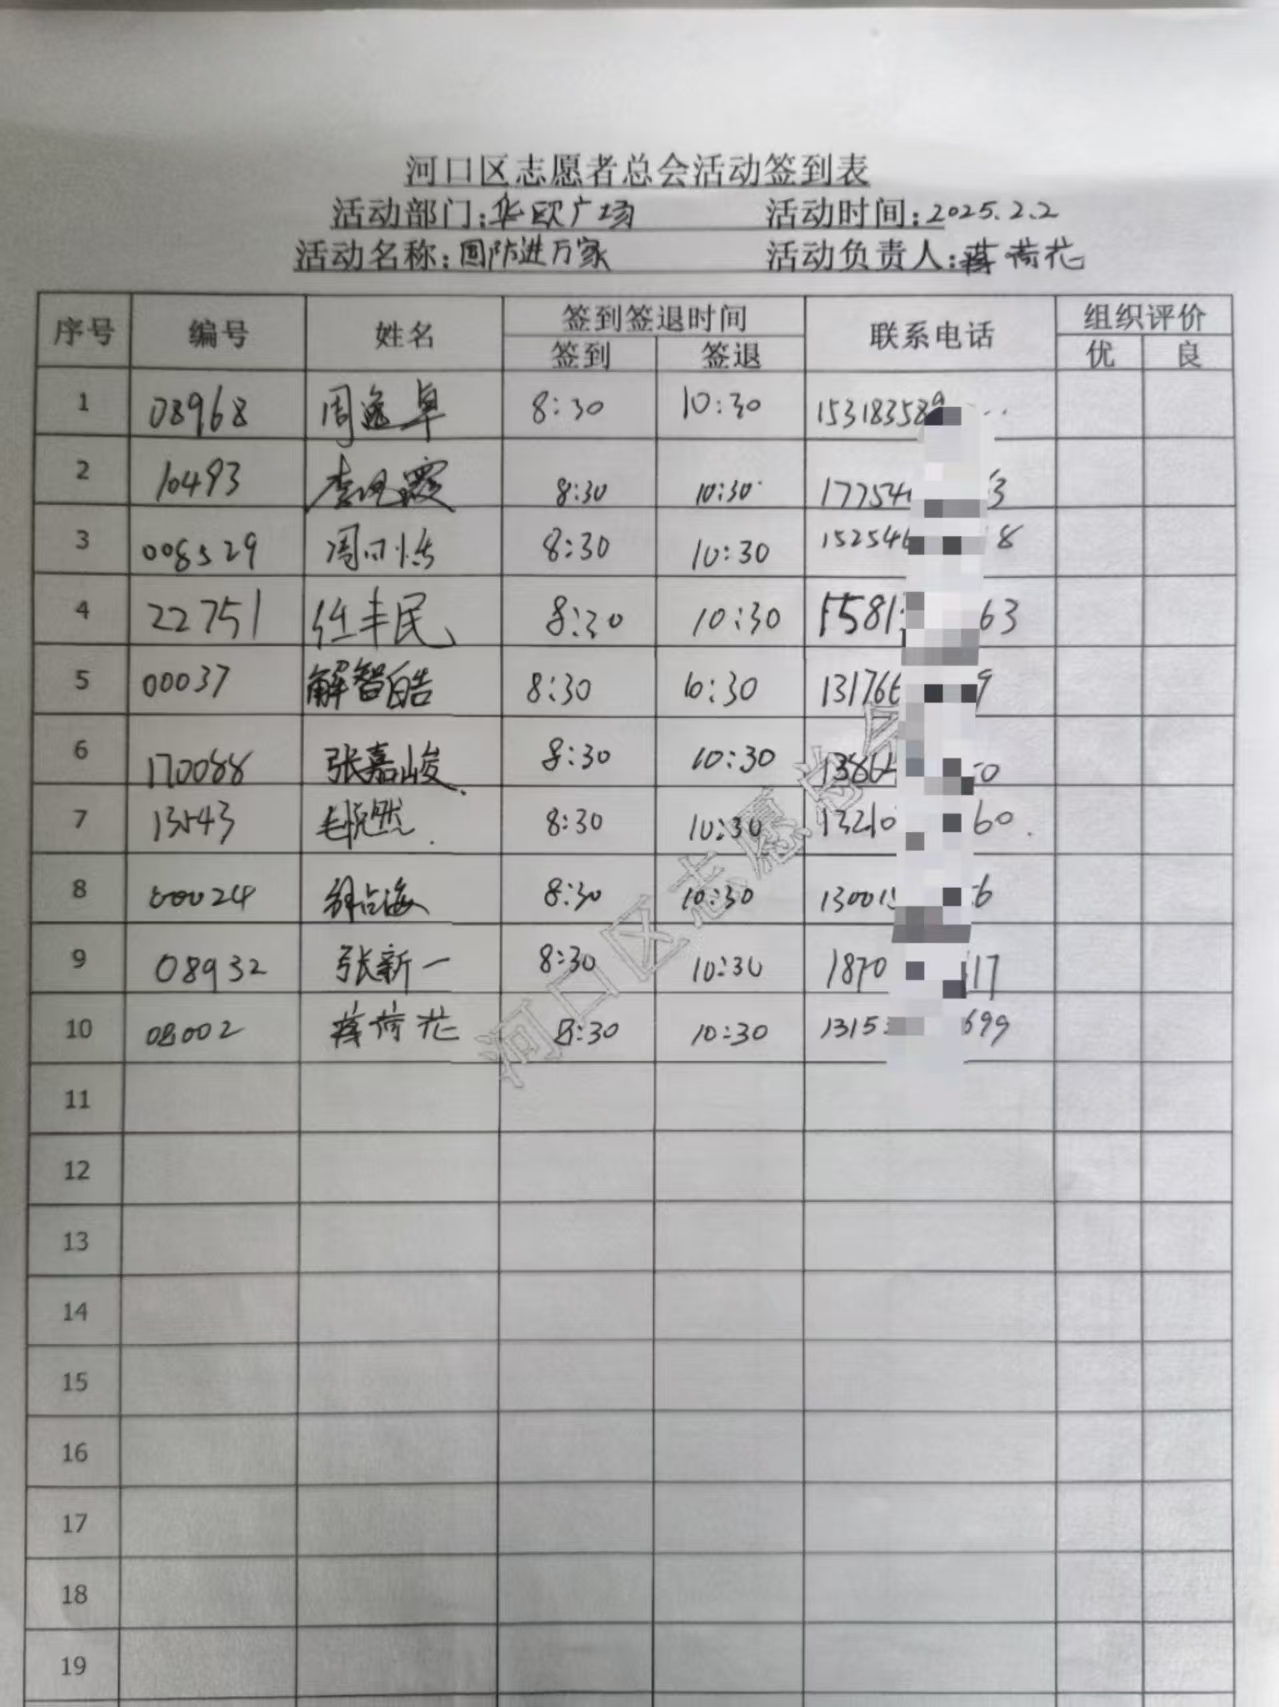 河口区志愿者总会活动签到表
活动部门:华欧广场 活动时间:2025.2.2
活动名称:国防进万家 活动负责人:蒋荷花
序号 编号 姓名 签到签退时间 联系电话 组织评价
签到 签退 优 良
1 08968 周逸卓 8:30 10:30 153183589
2 10493 李 霞 8:30 10:30 17754 3
3 008529 周 8:30 10:30 15254 8
4 22751 任丰民 8:30 10:30 15581 63
5 00037 解智皓 8:30 10:30 13176 9
6 170088 张嘉峻 8:30 10:30 1386 0
7 13543 毛悦然 8:30 10:30 13210 60
8 00024 8:30 10:30 13001 6
9 08932 张新一 8:30 10:30 1870 17
10 08002 蒋荷花 8:30 10:30 1315 699
11
12
13
14
15
16
17
18
19
河口区志愿总会